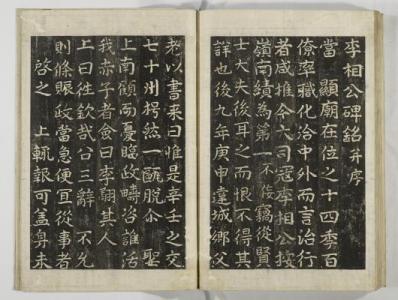 李相公碑銘 并序
當 顯廟在位之十四季百
僚率職化洽中外而言治行
者咸推今大司寇李相公按
嶺南績為第一不佞竊從賢
士大夫後耳之而恨不得其
詳也後九年庚申達城鄉父
老以書來曰唯是辛壬之交
七十州枵然一甌脫尒 聖
上南顧而憂臨政疇咨誰活
我赤子者僉曰李其人
上曰往欽哉公三辭 不允
則條賑政當急便宜從事者
啓之 上輒報可蓋身未